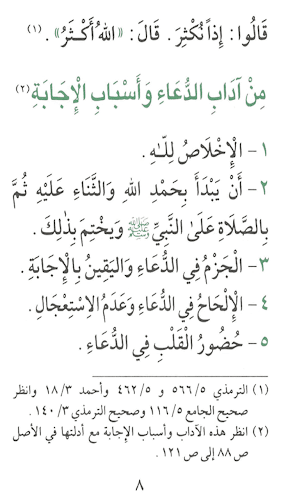 قَالُوا: إِذاً نُكْثِرَ. قَالَ: «اللهُ أَكْثَرُ». (١)
مِنْ آدَابِ الدُّعَاءِ وَأَسْبَابِ الْإِجَابَةِ (٢)
١ - الْإِخْلَاصُ لِلَّـهِ.
٢ - أَنْ يَبْدَأَ بِحَمْدِ اللهِ وَالثَّنَاءِ عَلَيْهِ ثُمَّ
بِالصَّلَاةِ عَلَىٰ النَّبِيِّ ﷺ وَيَخْتِمَ بِذٰلِكَ.
٣ - الْجَزْمُ فِي الدُّعَاءِ وَالْيَقِينُ بِالْإِجَابَةِ.
٤ - الْإِلْحَاحُ فِي الدُّعَاءِ وَعَدَمُ الِاسْتِعْجَالِ.
٥ - حُضُورُ الْقَلْبِ فِي الدُّعَاءِ.
(١) الترمذي ٥/ ٥٦٦ و ٥/ ٤٦٢ وأحمد ٣/ ١٨ وانظر
صحيح الجامع ٥/ ١١٦ وصحيح الترمذي ٣/ ١٤٠.
(٢) انظر هذه الآداب وأسباب الإجابة مع أدلتها في الأصل
ص ٨٨ إلى ص ١٢١.
٨